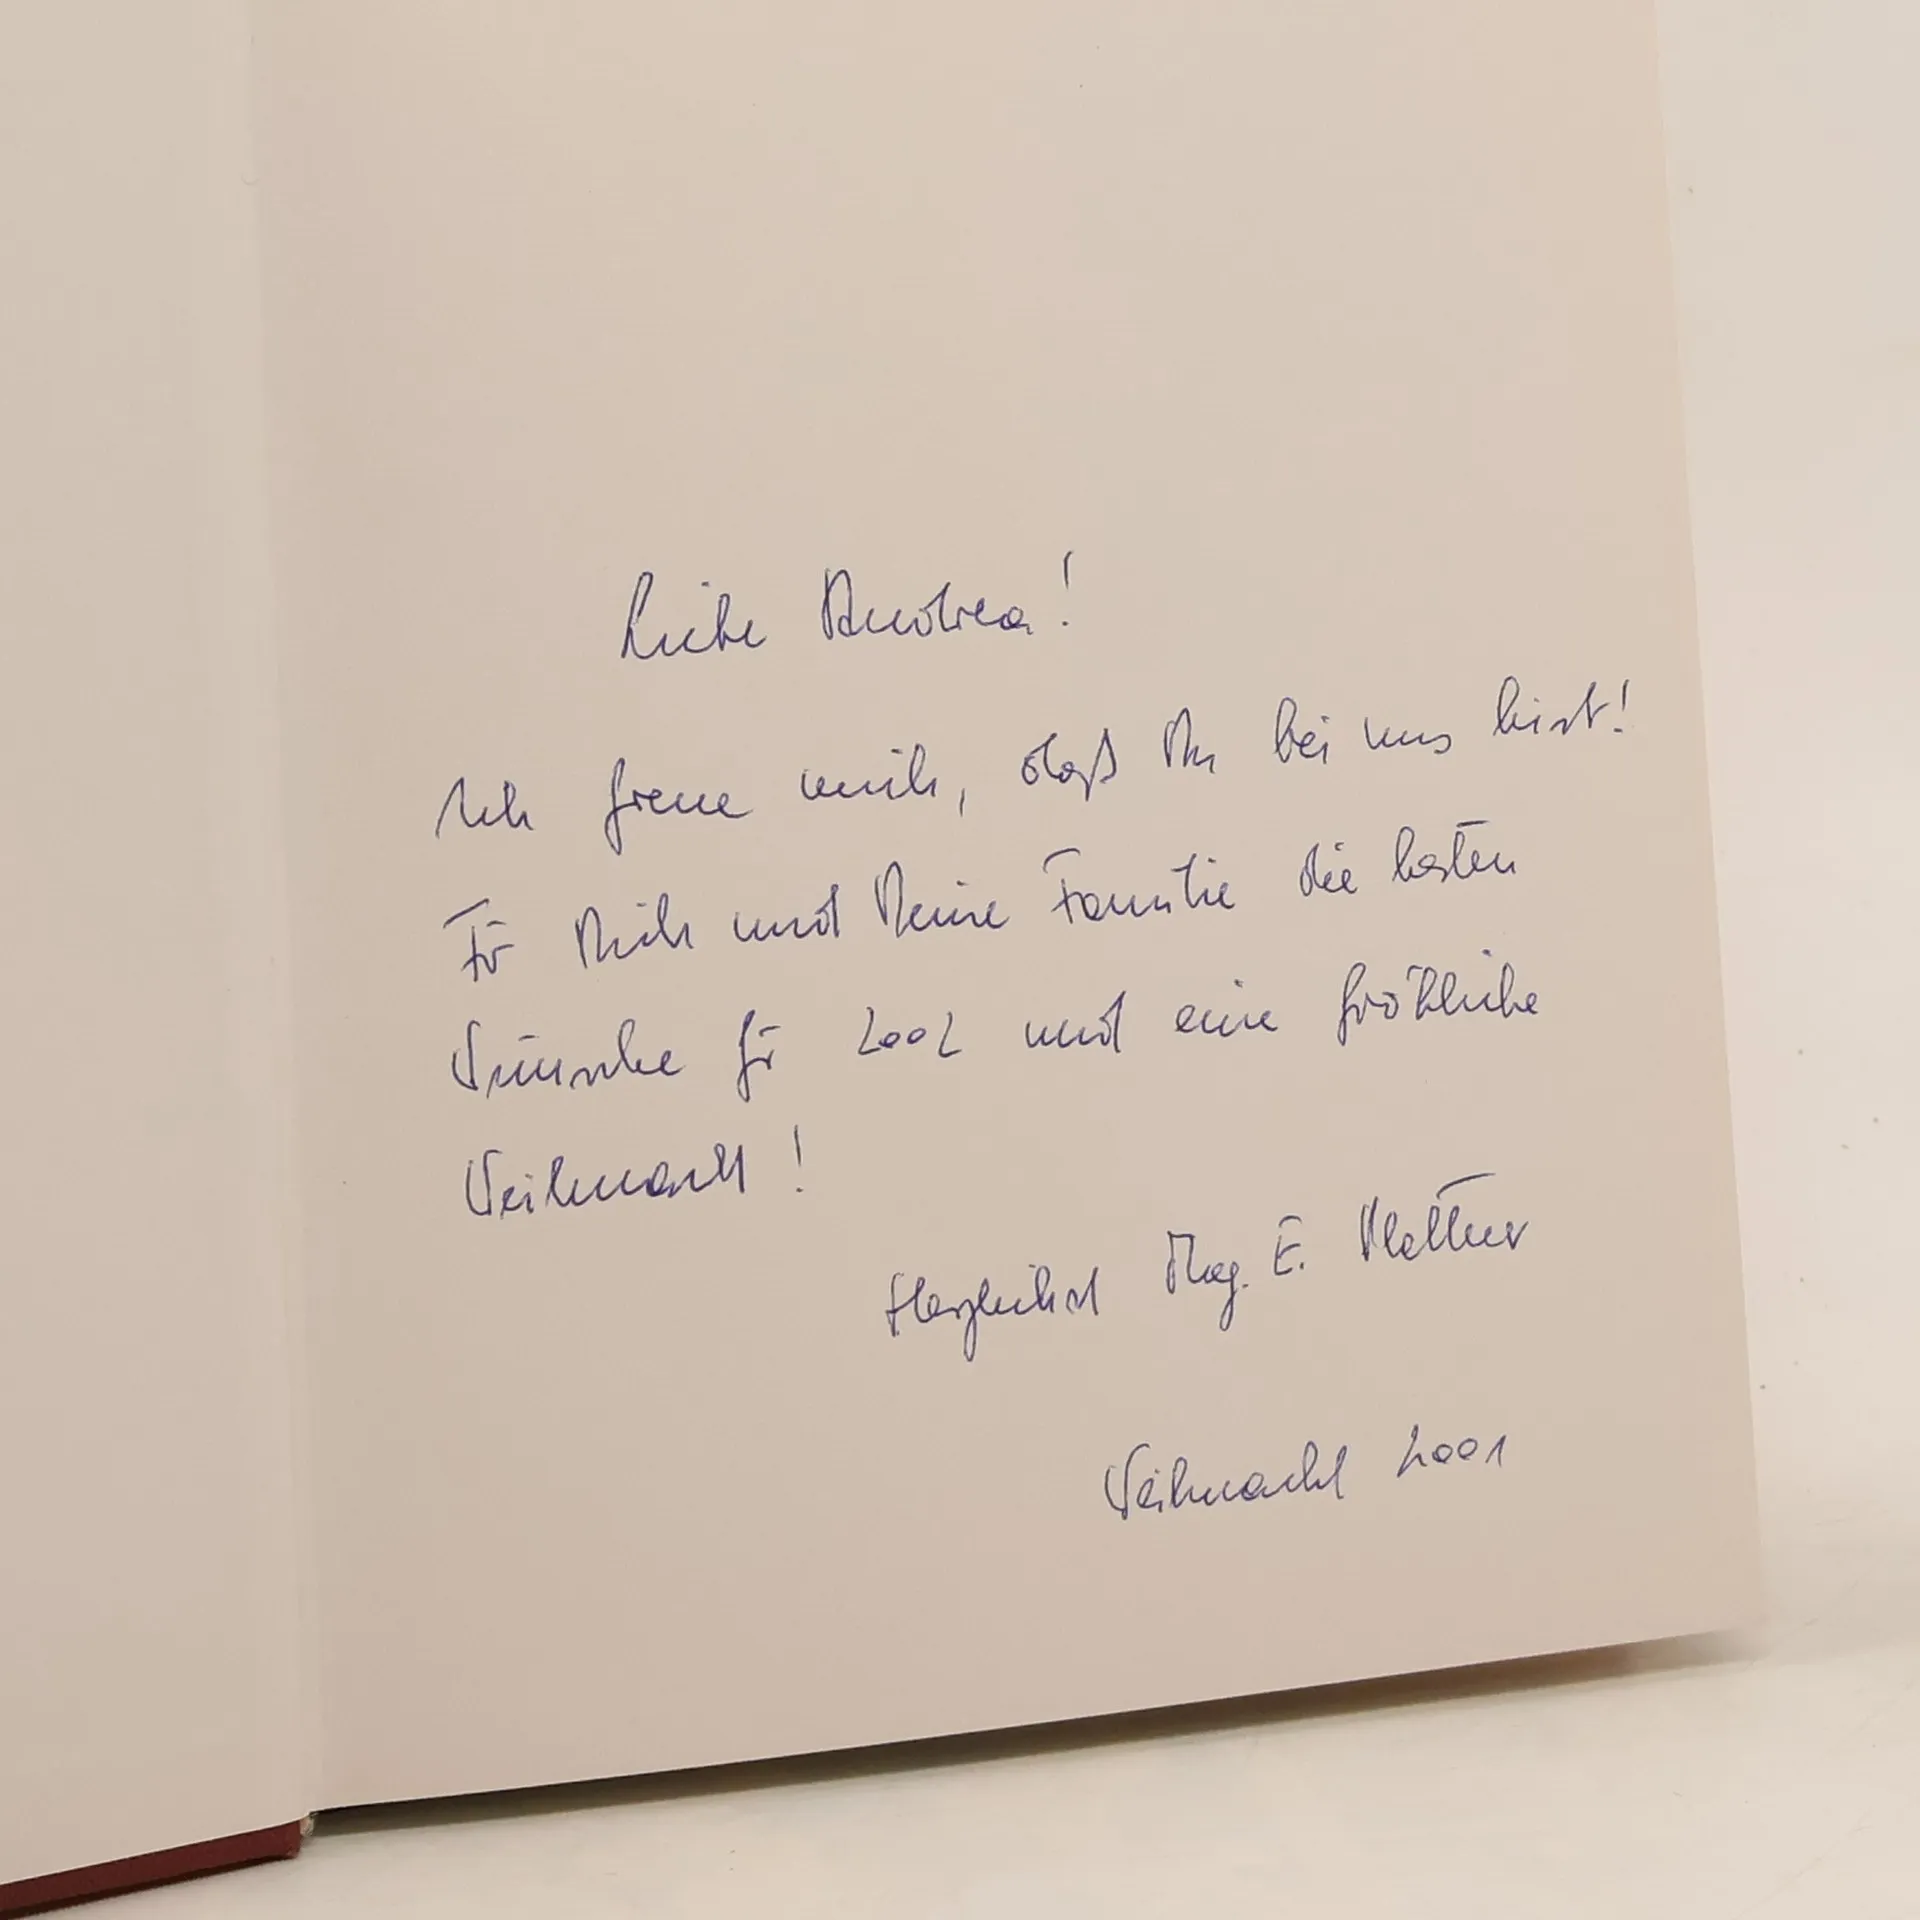 Liebe Andrea!
Ich freue mich, daß Du bei uns bist!
Für Dich und Deine Familie die besten
Wünsche für 2002 und eine fröhliche
Weihnacht!
Herzlichst Mag. E.
Weihnacht 2001